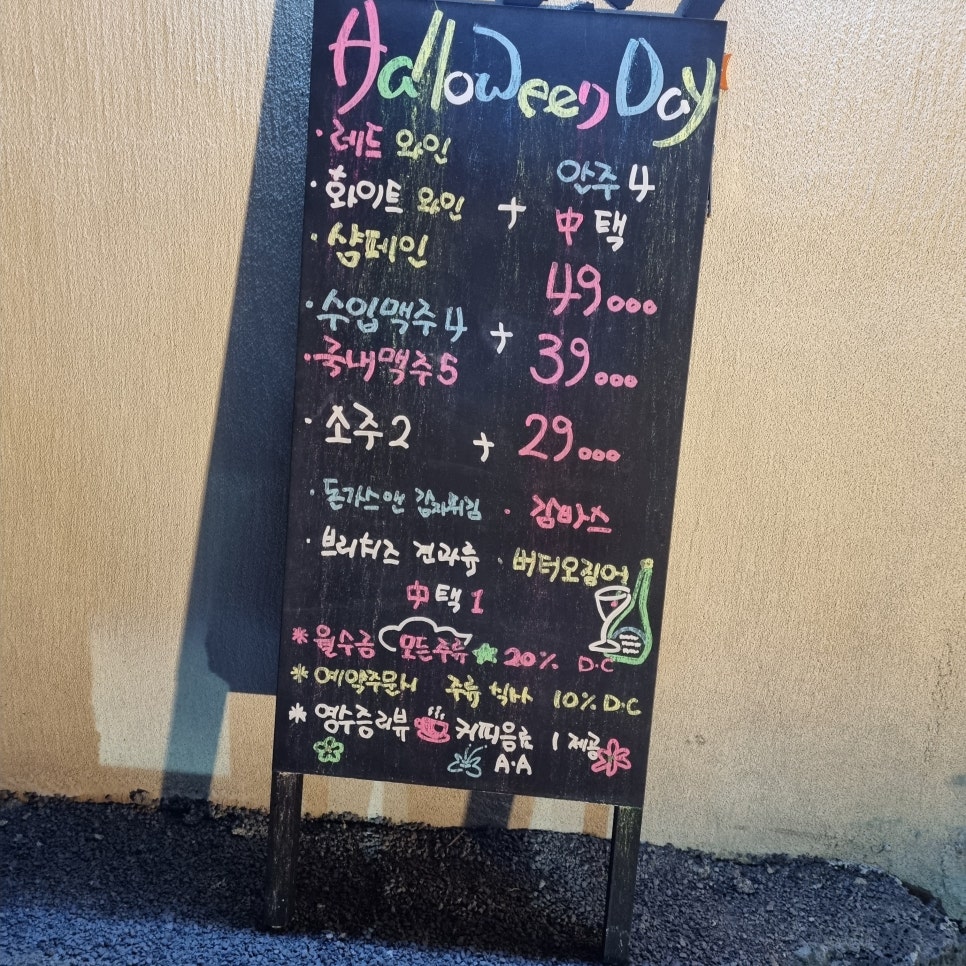 Halloween Day
· 레드 와인
· 화이트 와인 + 안주 4
· 샴페인 中 택
49000
· 수입맥주 4 + 39000
· 국내맥주 5
· 소주 2 + 29000
· 돈가스앤 감자튀김 · 감바스
· 브리치즈 견과류 · 버터오징어
中 택 1
* 월수금 모든주류 20% D.C
* 예약주문시 주류 식사 10% D.C
* 영수증리뷰 커피음료 1 제공
A.A